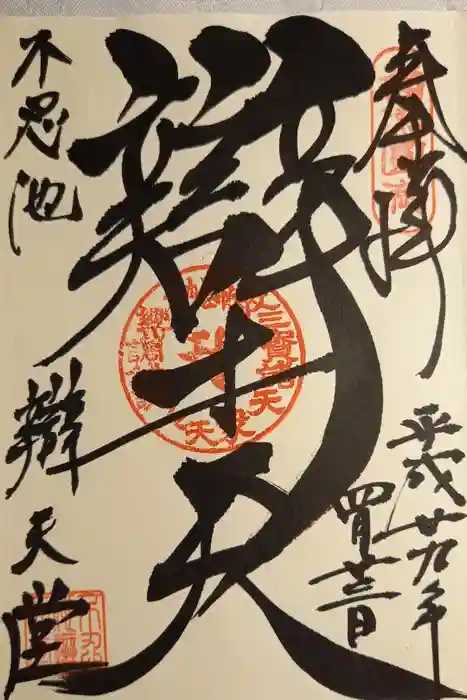 奉拝
平成廿九年
四月廿三日
辯才天
不忍池
辯天堂